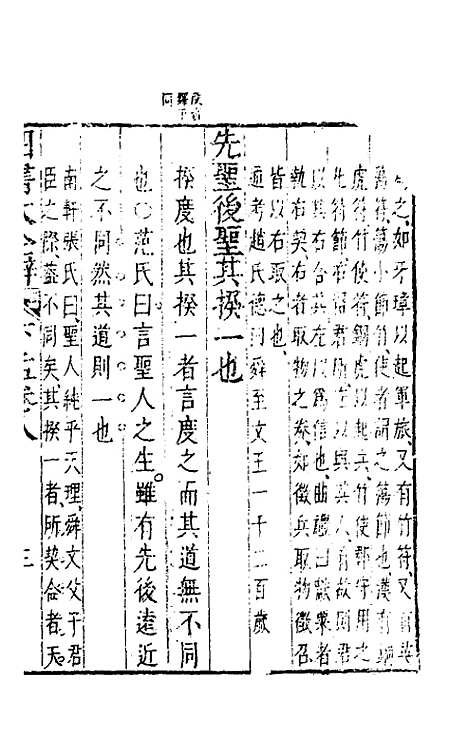 之如牙璋以起軍旅又有竹符又有英
蕩符蕩小節竹使者謂之蕩節也漢有銅
虎符竹使符銅虎以起兵竹使郡守用之
先符節右留君所左以與其人有故則君
以其右合其左以爲信也曲禮曰獻粟者
執右契右者取物之券如徵兵取物徵召
皆以右取之也
通考趙氏德曰舜至文王一千二百歲
先聖後聖其揆一也
揆度也其揆一者言度之而其道無不同
也○范氏曰言聖人之生雖有先後遠近
之不同然其道則一也
南軒張氏曰聖人純乎天理舜文父子君
臣之際蓋不同矣其揆一者所契合者天
四書大全辯 下孟卷八 三